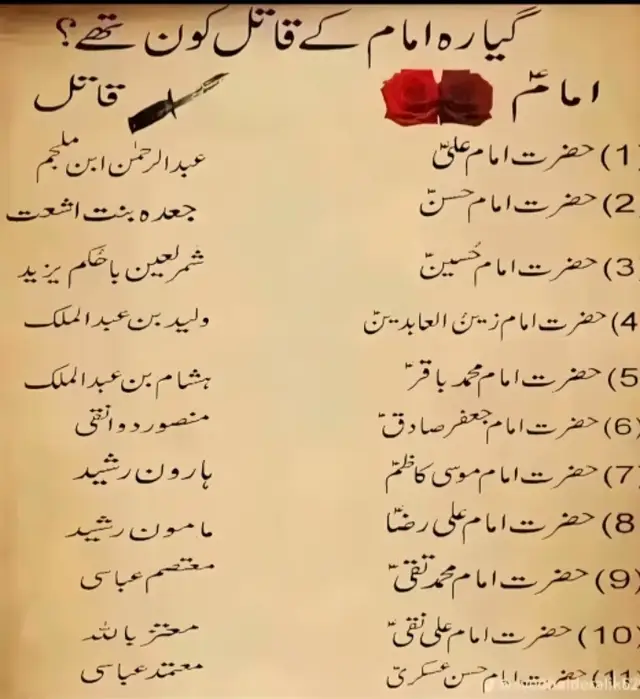 گیارہ امام کے قاتل کون تھے؟
امامؑ قاتل
(1) حضرت امام علیؑ عبدالرحمٰن ابن ملجم
(2) حضرت امام حسنؑ جعدہ بنت اشعت
(3) حضرت امام حُسینؑ شمر لعین باحُکم یزید
(4) حضرت امام زینُ العابدینؑ ولید بن عبدالملک
(5) حضرت امام محمد باقرؑ ہشام بن عبدالملک
(6) حضرت امام جعفر صادقؑ منصور دوانقی
(7) حضرت امام موسی کاظمؑ ہارون رشید
(8) حضرت امام علی رضاؑ مامون رشید
(9) حضرت امام محمد تقیؑ معتصم عباسی
(10) حضرت امام علی نقیؑ معتز باللہ
(11) حضرت امام حسن عسکریؑ معتمد عباسی